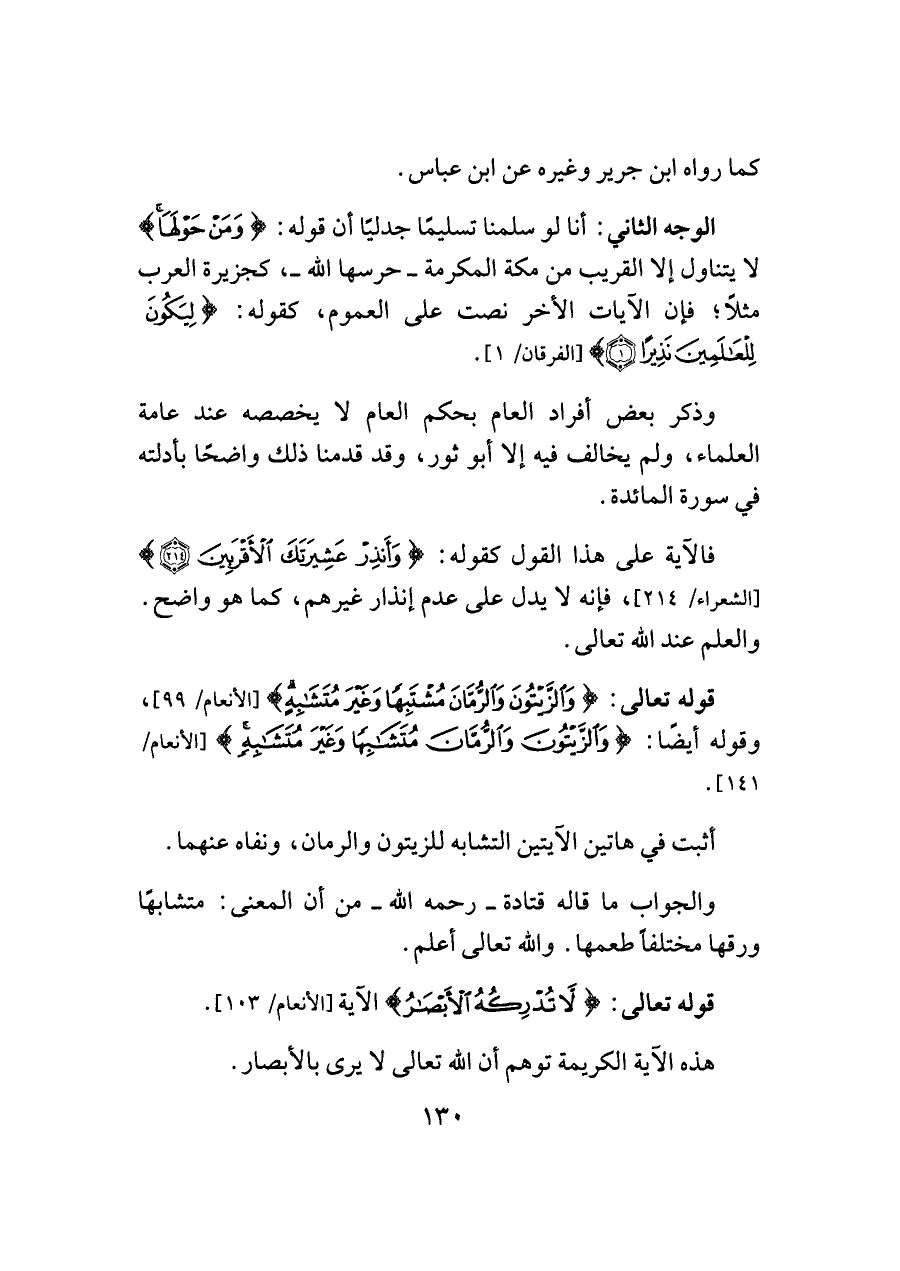 كما رواه ابن جرير وغيره عن ابن عباس.
الوجه الثاني: أنا لو سلمنا تسليمًا جدليًا أن قوله: ﴿ وَمَنْ حَوْلَهَاۚ﴾
لا يتناول إلا القريب من مكة المكرمة ـ حرسها الله ـ، كجزيرة العرب
مثلاً؛ فإن الآيات الأخر نصت على العموم، كقوله: ﴿ لِيَكُونَ
لِلْعَٰلَمِينَ نَذِيرًا ١﴾ [الفرقان/ ١].
وذكر بعض أفراد العام بحكم العام لا يخصصه عند عامة
العلماء، ولم يخالف فيه إلا أبو ثور، وقد قدمنا ذلك واضحًا بأدلته
في سورة المائدة.
فالآية على هذا القول كقوله: ﴿ وَأَنذِرْ عَشِيرَتَكَ ٱلْأَقْرَبِينَ ٢١٤ ﴾
[الشعراء/ ٢١٤]، فإنه لا يدل على عدم إنذار غيرهم، كما هو واضح.
والعلم عند الله تعالى.
قوله تعالى: ﴿ وَٱلزَّيْتُونَ وَٱلرُّمَّانَ مُشْتَبِهًا وَغَيْرَ مُتَشَٰبِهٍۗ﴾ [الأنعام/ ٩٩]،
وقوله أيضًا: ﴿ وَٱلزَّيْتُونَ وَٱلرُّمَّانَ مُتَشَٰبِهًا وَغَيْرَ مُتَشَٰبِهٍۚ ﴾ [الأنعام/
١٤١].
أثبت في هاتين الآيتين التشابه للزيتون والرمان، ونفاه عنهما.
والجواب ما قاله قتادة ـ رحمه الله ـ من أن المعنى: متشابهًا
ورقها مختلفاً طعمها. والله تعالى أعلم.
قوله تعالى: ﴿ لَا تُدْرِكُهُ ٱلْأَبْصَٰرُ﴾ الآية [الأنعام/ ١٠٣].
هذه الآية الكريمة توهم أن الله تعالى لا يرى بالأبصار.
١٣٠